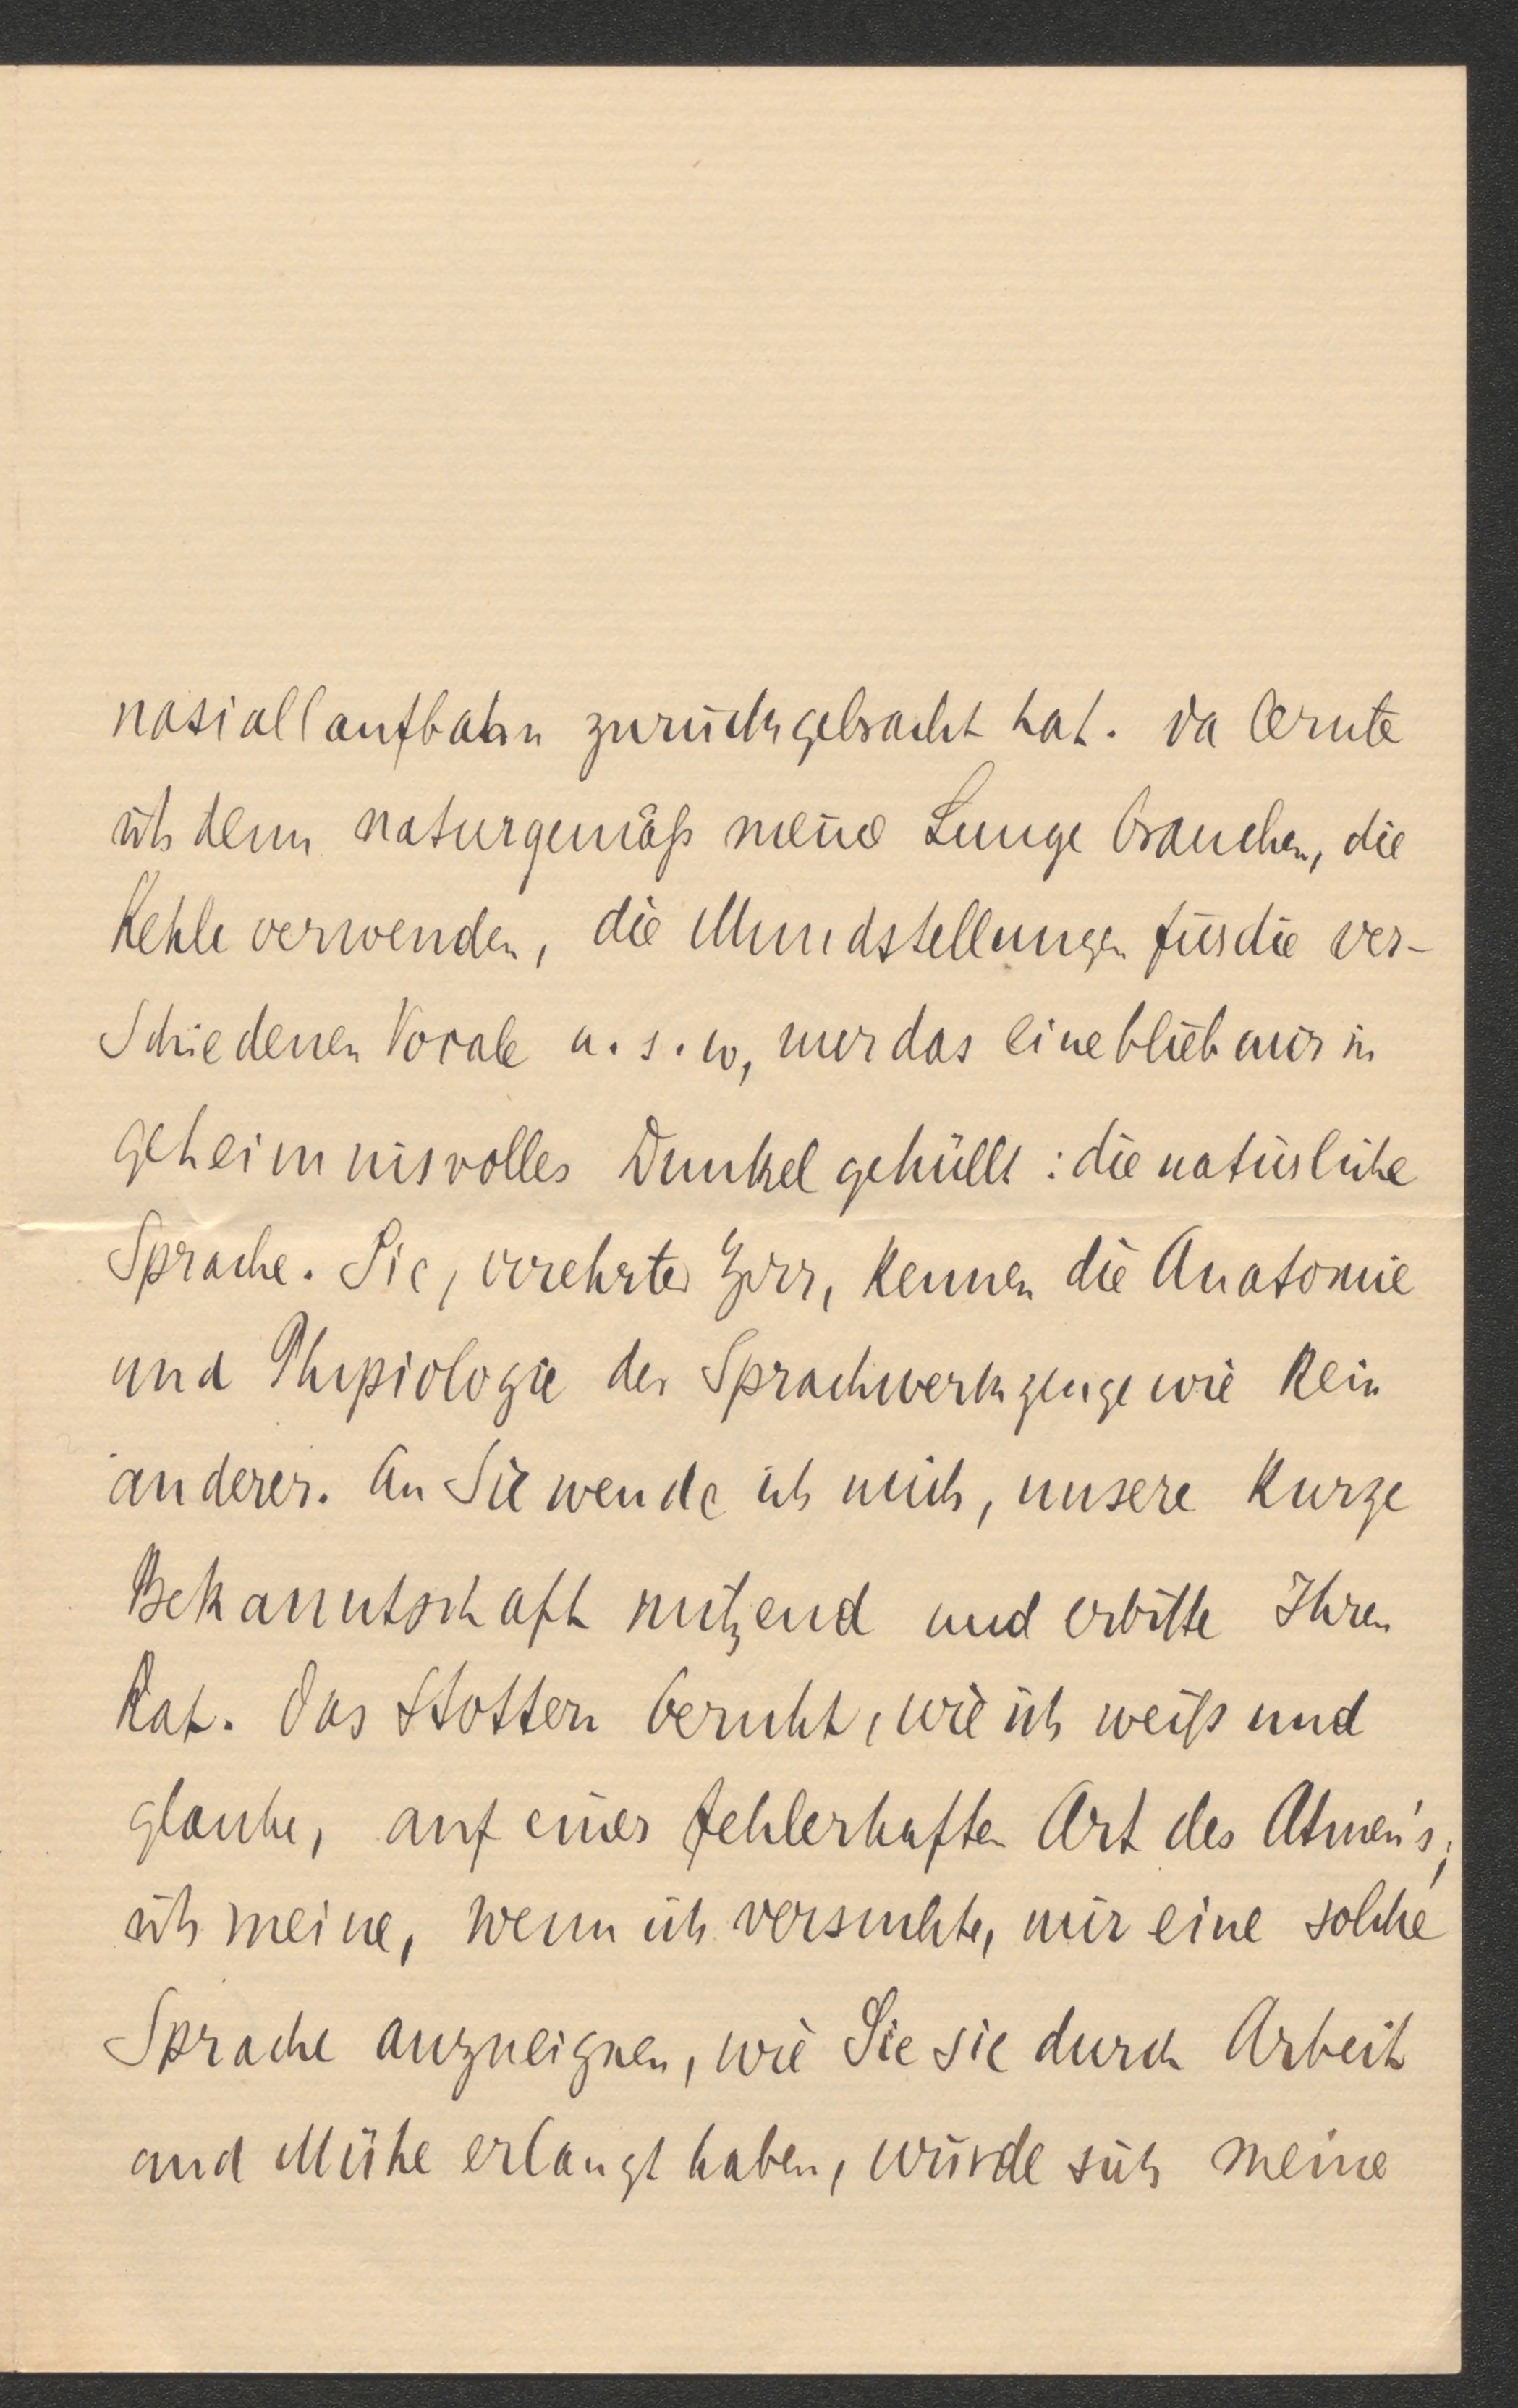 nasiallaufbahn zurückgebracht hat. Da lernte
ich denn naturgemäß meine Lunge brauchen, die
Kehle verwenden, die Mundstellungen für die ver-
schiedenen Vocale u. s. w, nur das eine blieb mir in
geheimnisvolles Dunkel gehüllt: die natürliche
Sprache. Sie, verehrter Herr, kennen die Anatomie
und Physiologie der Sprachwerkzeuge wie kein
anderer. An Sie wende ich mich, unsere kurze
Bekanntschaft nützend und erbitte Ihren
Rat. Das Stottern beruht, wie ich weiß und
glaube, auf einer fehlerhaften Art des Atmen's;
ich meine, wenn ich versuchte, mir eine solche
Sprache anzueignen, wie Sie sie durch Arbeit
und Mühe erlangt haben, würde sich meine